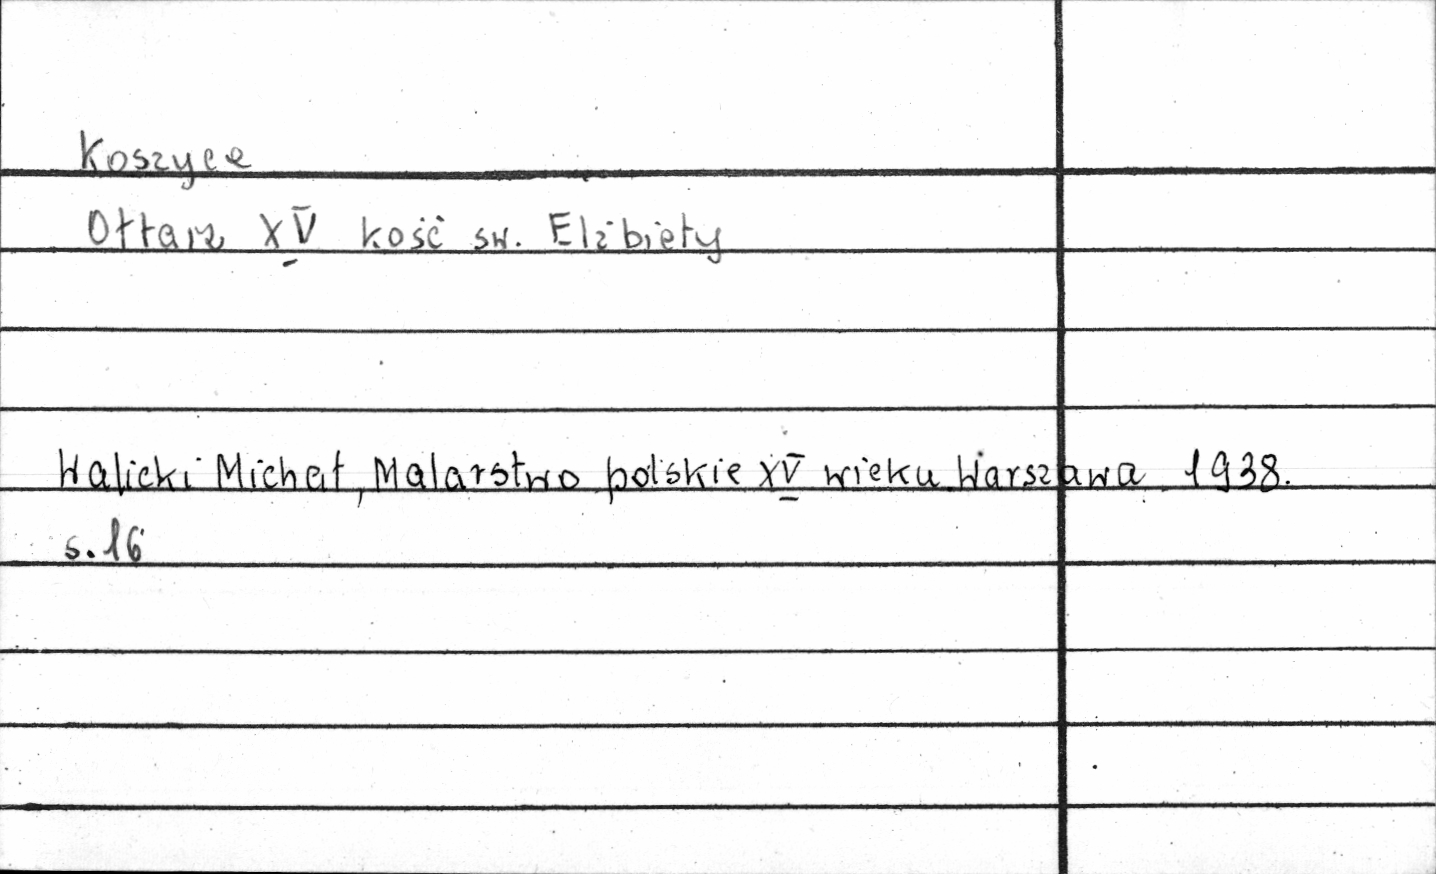 Koszyce
Ołtarz XV kość sw. Elżbiety
Walicki Michał, Malarstwo polskie XV wieku Warszawa 1938.
s. 16